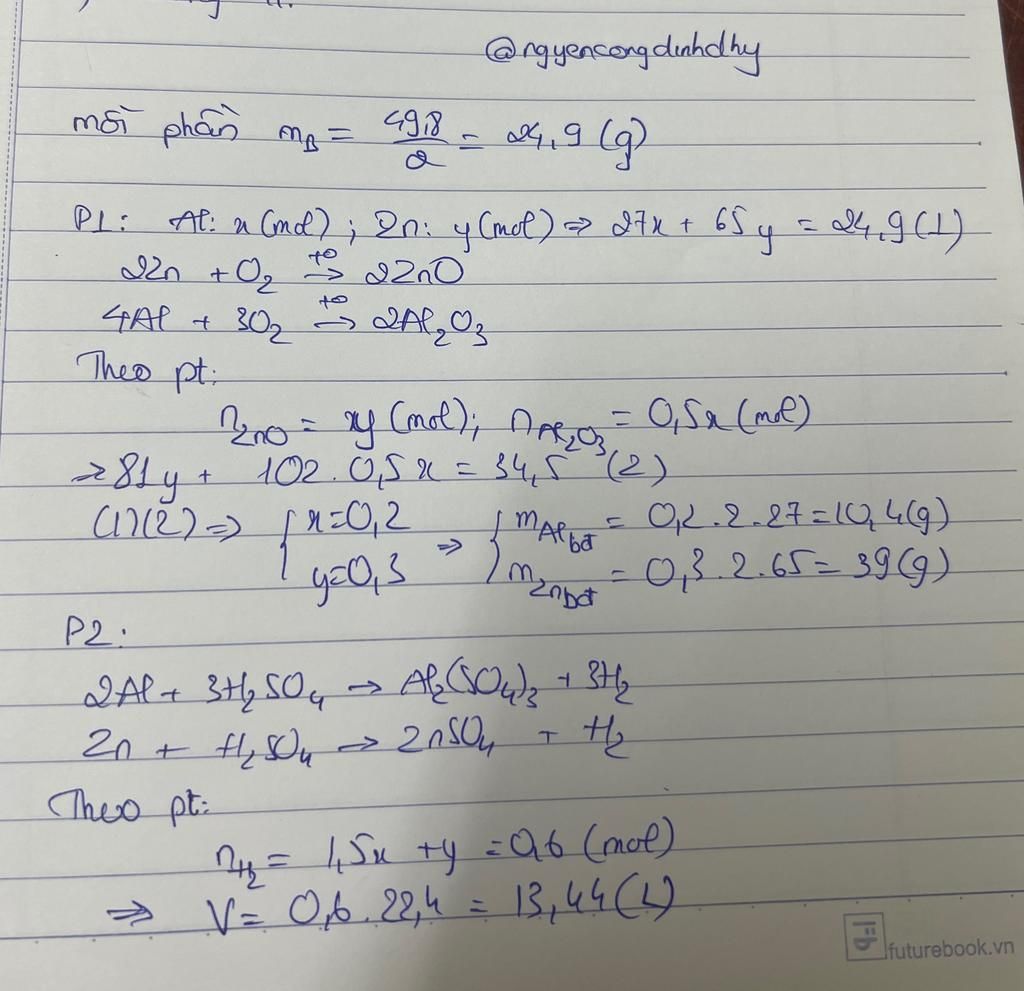 @ngyencongdinhdhy
mỗi phần m_B = 49,8/2 = 24,9 (g)
P1: Al: x (mol) ; Zn: y (mol) => 27x + 65y = 24,9 (1)
2Zn + O₂ →(t°) 2ZnO
4Al + 3O₂ →(t°) 2Al₂O₃
Theo pt:
n_ZnO = xy (mol); n_Al₂O₃ = 0,5x (mol)
=> 81y + 102 . 0,5x = 34,5 (2)
(1)(2) => { x=0,2 => { m_Al bđ = 0,2 . 2 . 27 = 10,4 (g)
y=0,3 m_Zn bđ = 0,3 . 2 . 65 = 39 (g)
P2:
2Al + 3H₂SO₄ → Al₂(SO₄)₃ + 3H₂
Zn + H₂SO₄ → ZnSO₄ + H₂
Theo pt:
n_H₂ = 1,5x + y = 0,6 (mol)
=> V = 0,6 . 22,4 = 13,44 (L)
futurebook.vn